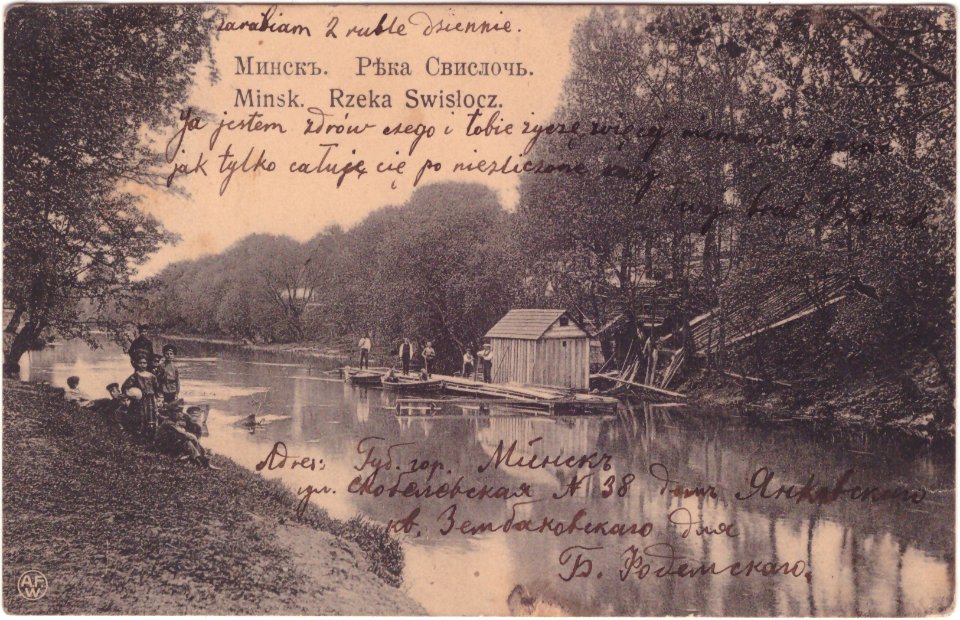 zarabiam 2 ruble dziennie.
Минскъ. Рѣка Свислочь.
Minsk. Rzeka Swisłocz.
Ja jestem zdrów czego i tobie życzę więcej niemam co pisać
jak tylko całuję cię po niezliczone razy
twój brat
Adres: Губ. гор. Минскъ
ул. Скобелевская N 38 домъ Янковскаго
кв. Зембаковскаго для
Б.
AFW